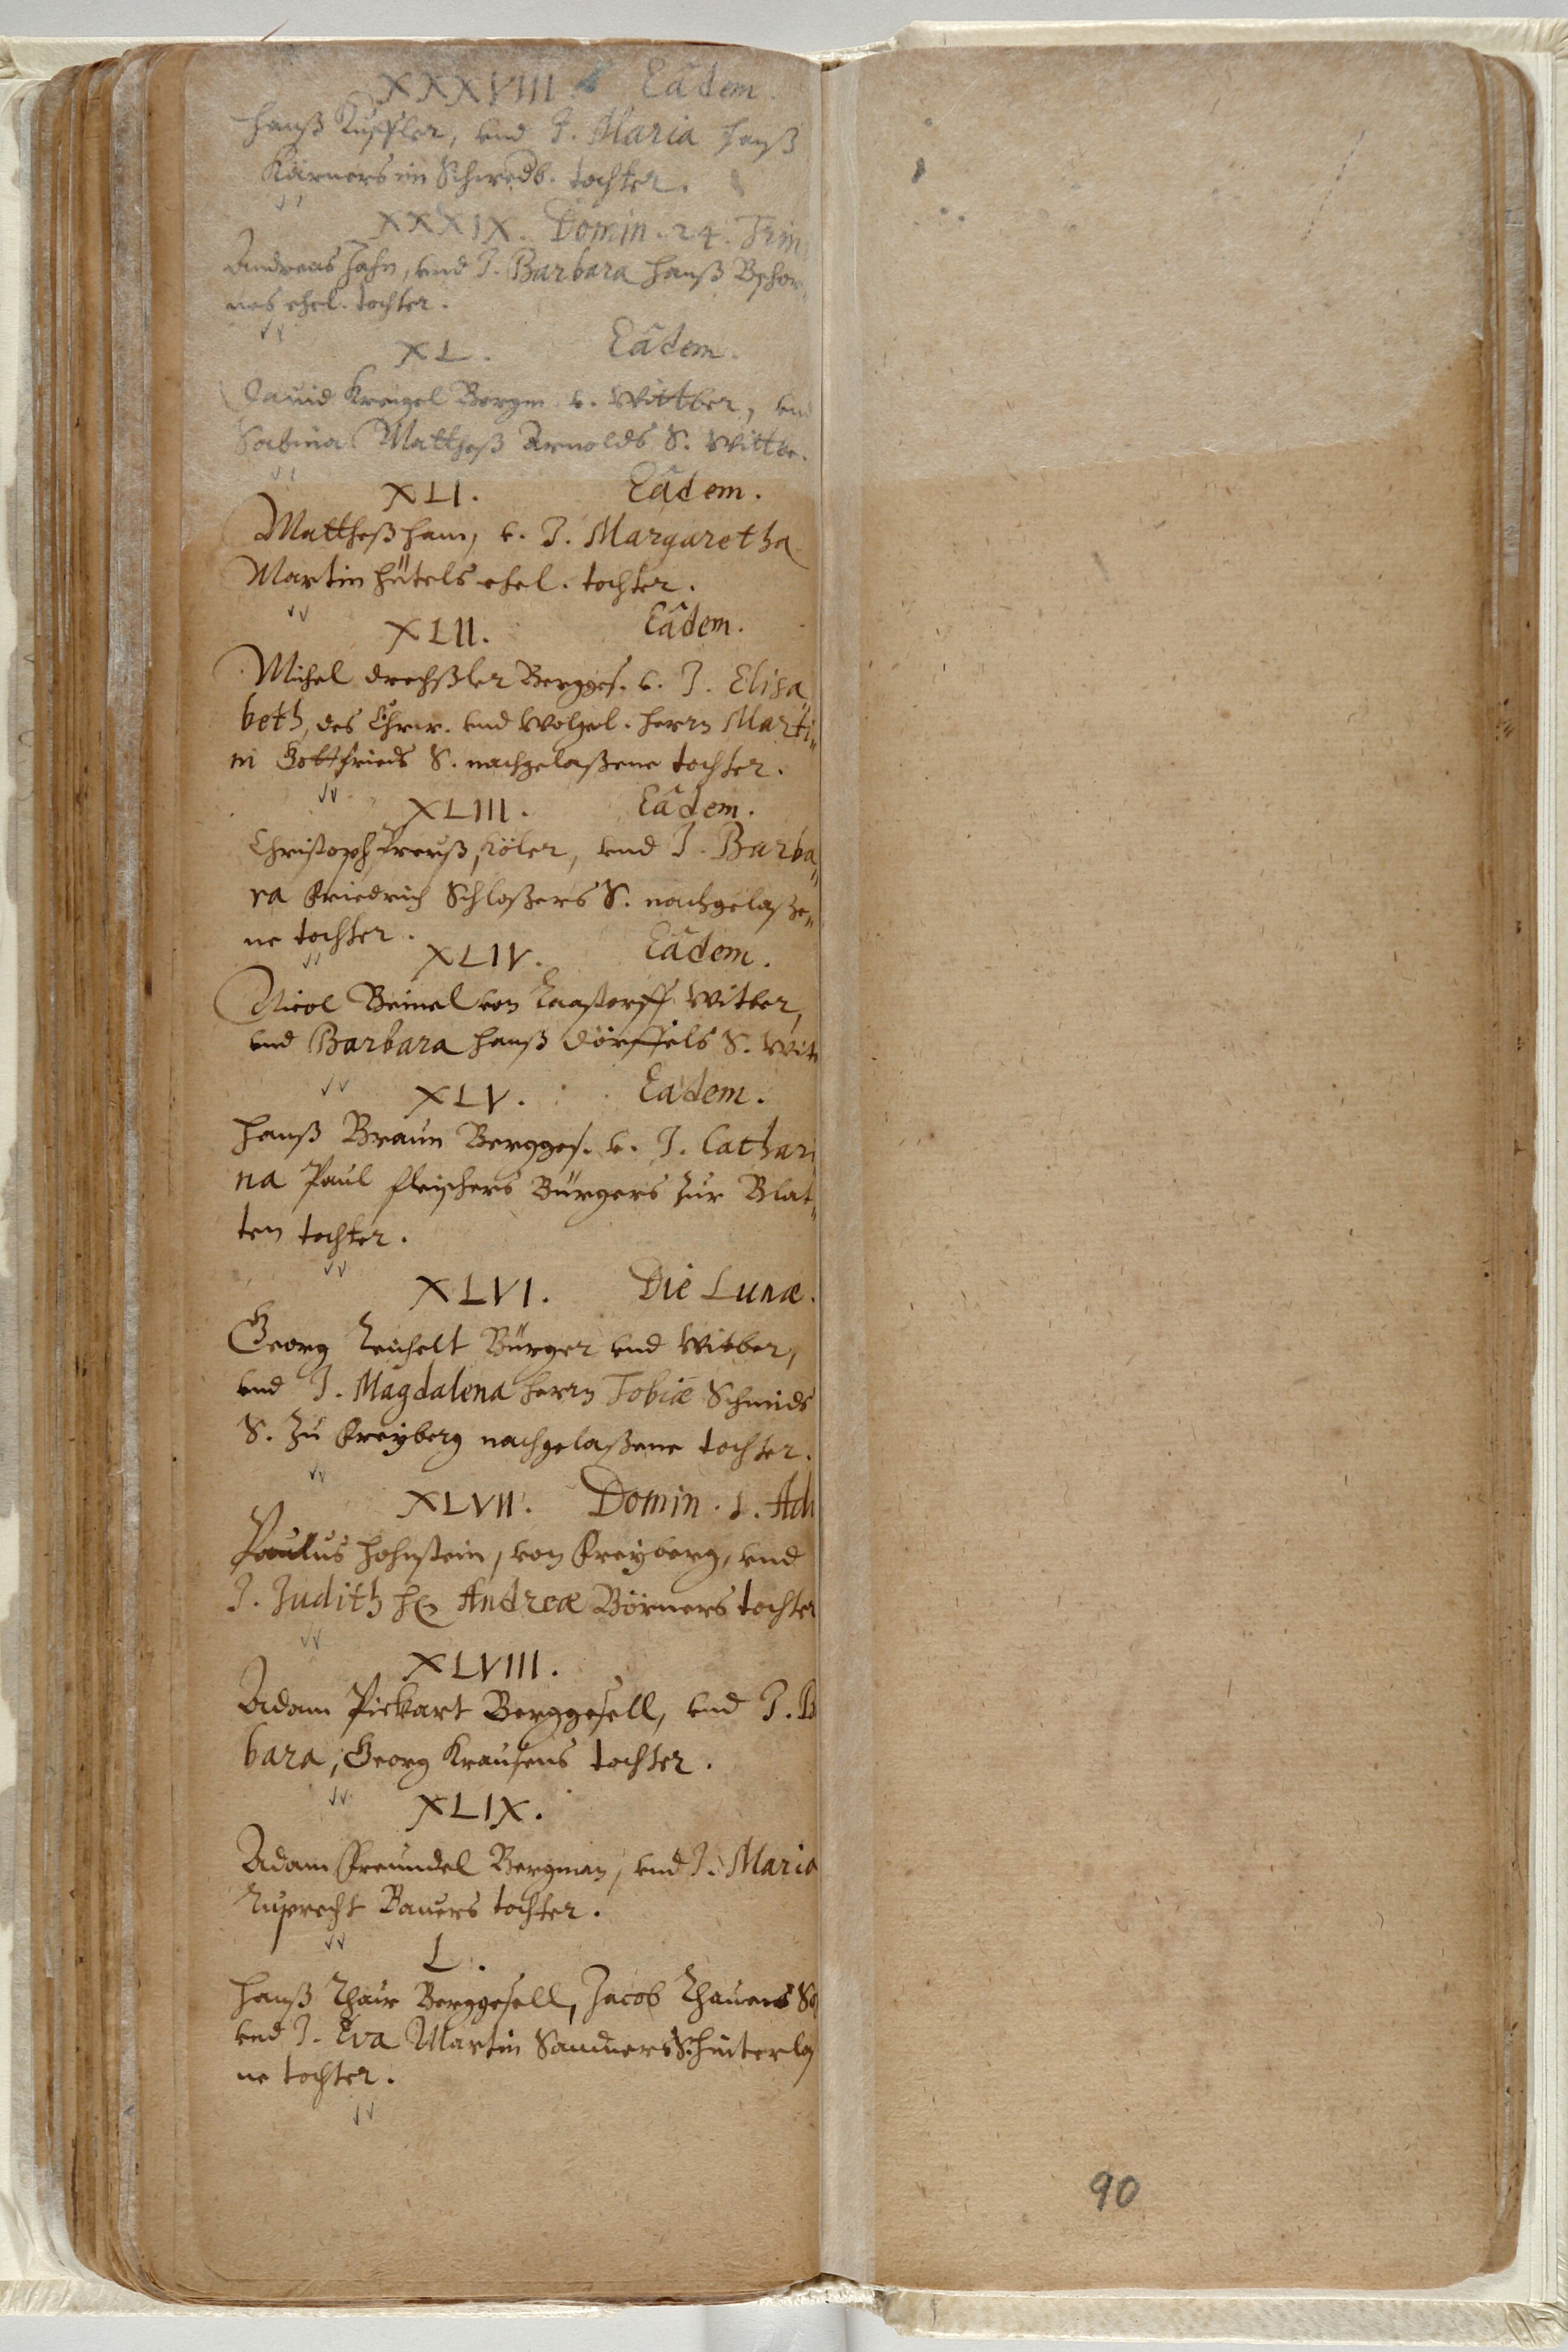 XXXVIII. Eâdem.
Hanß Küffler, vnd J. Maria Hanß
Körners im Schmedb. tochter.
XXXIX. Domin. 24. Trin
Andreas Jahn, vnd J. Barbara Hanß
nes ehel. tochter.
XL. Eâdem.
Dauid Krengel Bergm. v. Witber, vnd
Sabina Mattheß Arnolds S. Witbe.
XLI. Eâdem.
Mattheß Ham, v. J. Margaretha
Martin Hütels ehel. tochter.
XLII. Eâdem.
Michel Drechßler Bergges. v. J. Elisa„
beth, des Ehrw. vnd Wolgel. Herrn Marti„
ni Gottfrieds S. nachgelaßene tochter.
XLIII. Eâdem.
Christoph Preuß, Köler, vnd J. Barba„
ra Friedrich Schloßers S. nachgelaße„
ne tochter.
XLIV. Eâdem.
Nicol Beimel von Witber,
vnd Barbara Hanß Dörffels S. Wit
XLV. Eâdem.
Hanß Braun Bergges. v. J. Cathari
na Paul Fleischers Bürgers zur Blat„
ten tochter.
XLVI. Die Lunæ.
Georg Reichelt Bürger vnd Witber,
vnd J. Magdalena Herrn Tobiæ Schmids
S. zu Freyberg nachgelaßene tochter.
XLVII. Domin. 1. Adv
Paulus Hohnstein, von Freyberg, vnd
J. Judith H. Andreæ Börners tochter
XLVIII.
Adam Pickart Berggesell, vnd J. B
bara, Georg Krausens tochter.
XLIX.
Adam Freundel Bergman, vnd J. Maria
Ruprecht Bauers tochter.
L.
Hanß Berggesell, Jacob So
vnd J. Eva Martin Sanders S. hinterlaß
ne tochter.
90